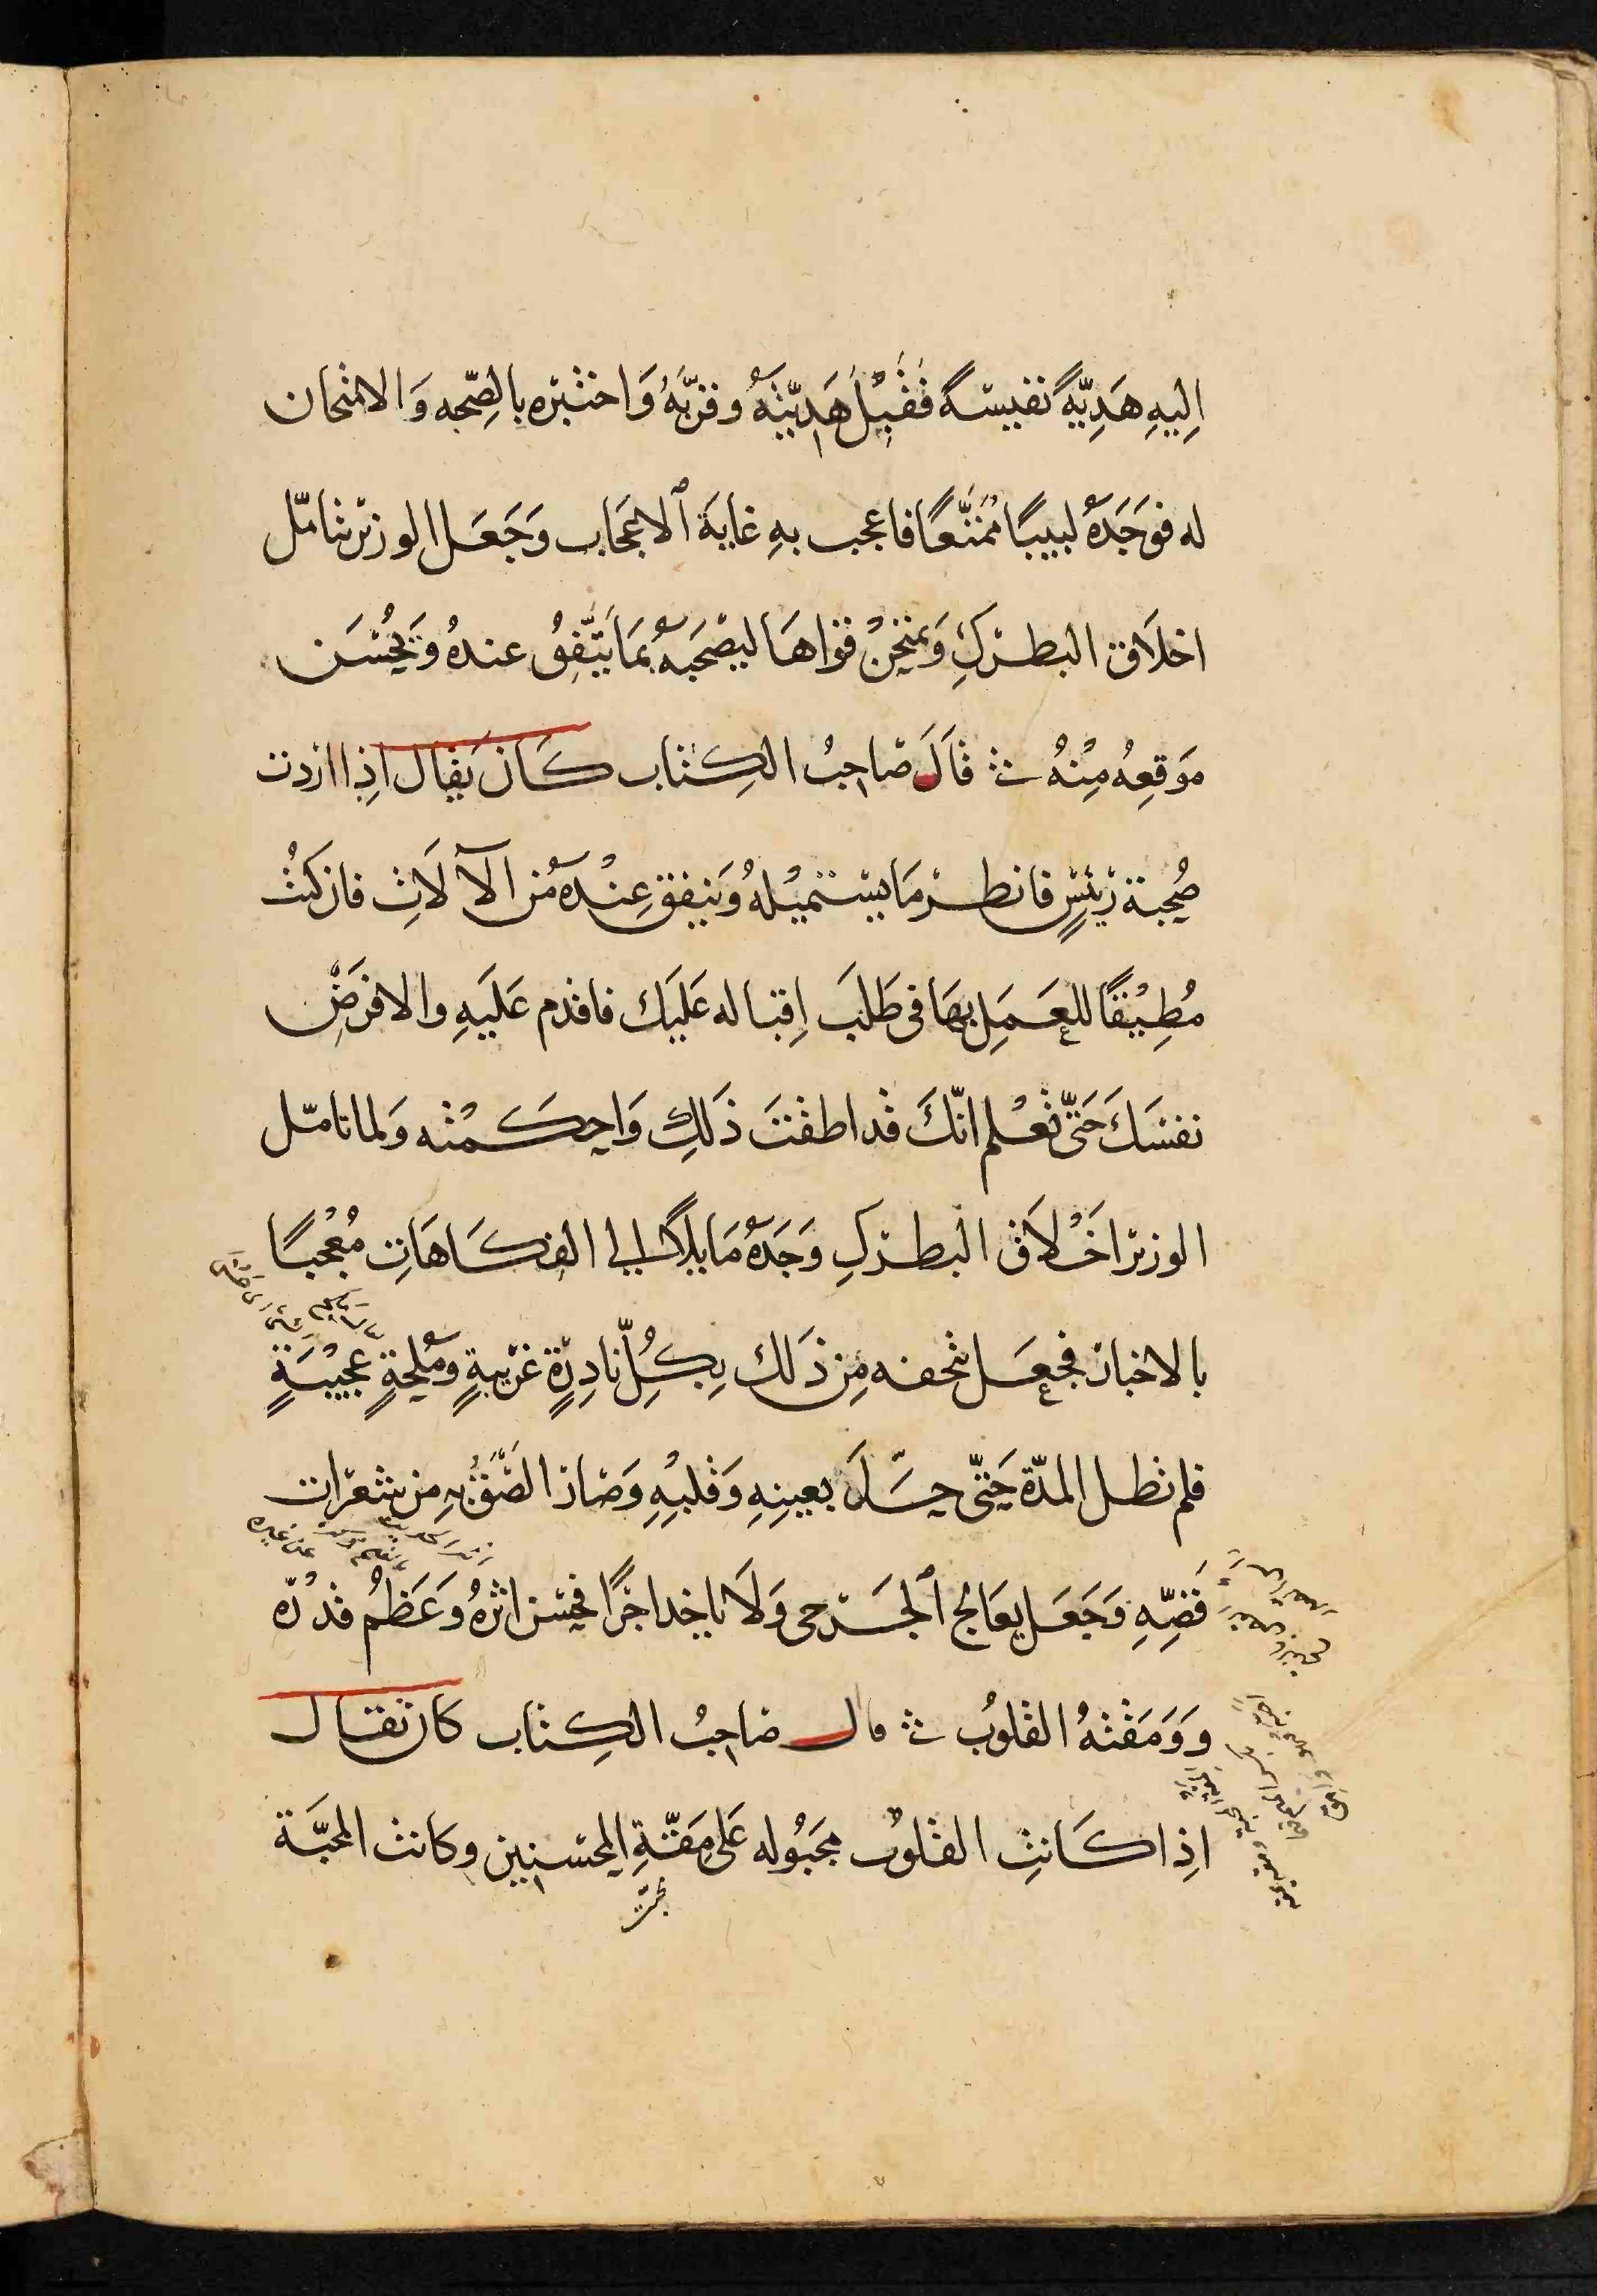 اِليهِ هَدِيّةً نفيسَةً فقَبِلَ هَدِيّتَهُ وقرّبَهُ وَاختبَره بالصِّحبه وَالامتحان
له فوَجَدَهُ لبيبًا مُمتّعًا فاعجب بهِ غايَة الاعجَاب وَجَعَل الوزير يتامّل
اخلَاق البطرَكِ وَيمتحِنُ قواهَا ليصْحَبهُ بمَا يَتّفِقُ عندهُ وَيَحْسُن
مَوقعِهُ مِنْهُ قَالَ صَاحِبُ الكِتاب كَان يقال اِذا اردت
صُحبة رئيسٍ فانظر مَا يستميْلهُ وَينفق عِنْدَهُ من الآلَاتِ فان كنتَ
مُطِيْقًا للعَمَلِ بهَا فى طَلَب اِقباله عَليَك فاقدم عَليَهِ والا فرَضِّ
نفسَكَ حَتّى تعْلم انّكَ قد اطقتَ ذَلكِ وَاحكمْته وَلما تامّل
الوزير اخْلَاق البطركِ وَجَدَهُ مَايلًا الى الفكَاهَاتِ مُعْجبًا
بالاخبار فجعَل يتحفه مِن ذَلك بِكُلِّ نادِرَةٍ غريبةٍ ومُلحةٍ عجيْبَةٍ
فلم تطل المدّة حَتّى حَلَّ بعينِهِ وَقلبِهِ وَصَار الصَّقَ بهِ من شعرات
قَصِّهِ وَجَعَل يعَالج الجَرحى وَلَا ياخد اجْرًا فحسن اثرهُ وَعَظُم قدْرَه
وَوَمَقتهُ القلوبُ قال صَاحِبُ الكِتاب كان يقال
اِذا كَانتِ القلوبُ مجَبُوله عَلى مِقَةِ المحْسنِين وكانت المحبَّة